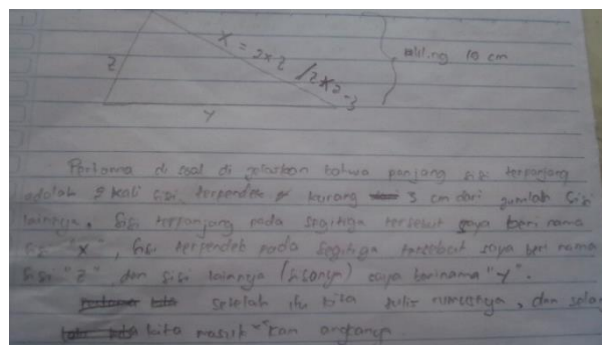 X = 2 x 2 / 2 x 2 - 3
Z
keliling 10 cm
Y
Pertama di soal di jelaskan bahwa panjang sisi terpanjang
adalah 2 kali sisi terpendek kurang 3 cm dari jumlah sisi
lainnya. Sisi terpanjang pada segitiga tersebut saya beri nama
sisi "X", sisi terpendek pada segitiga tersebut saya beri nama
sisi "Z", dan sisi lainnya (sisanya) saya berinama "Y".
setelah itu kita tulis rumusnya, dan
kita masuk-kan angkanya